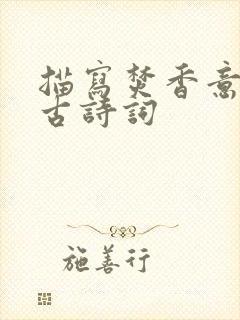 描寫焚香意
古詩詞
施善行